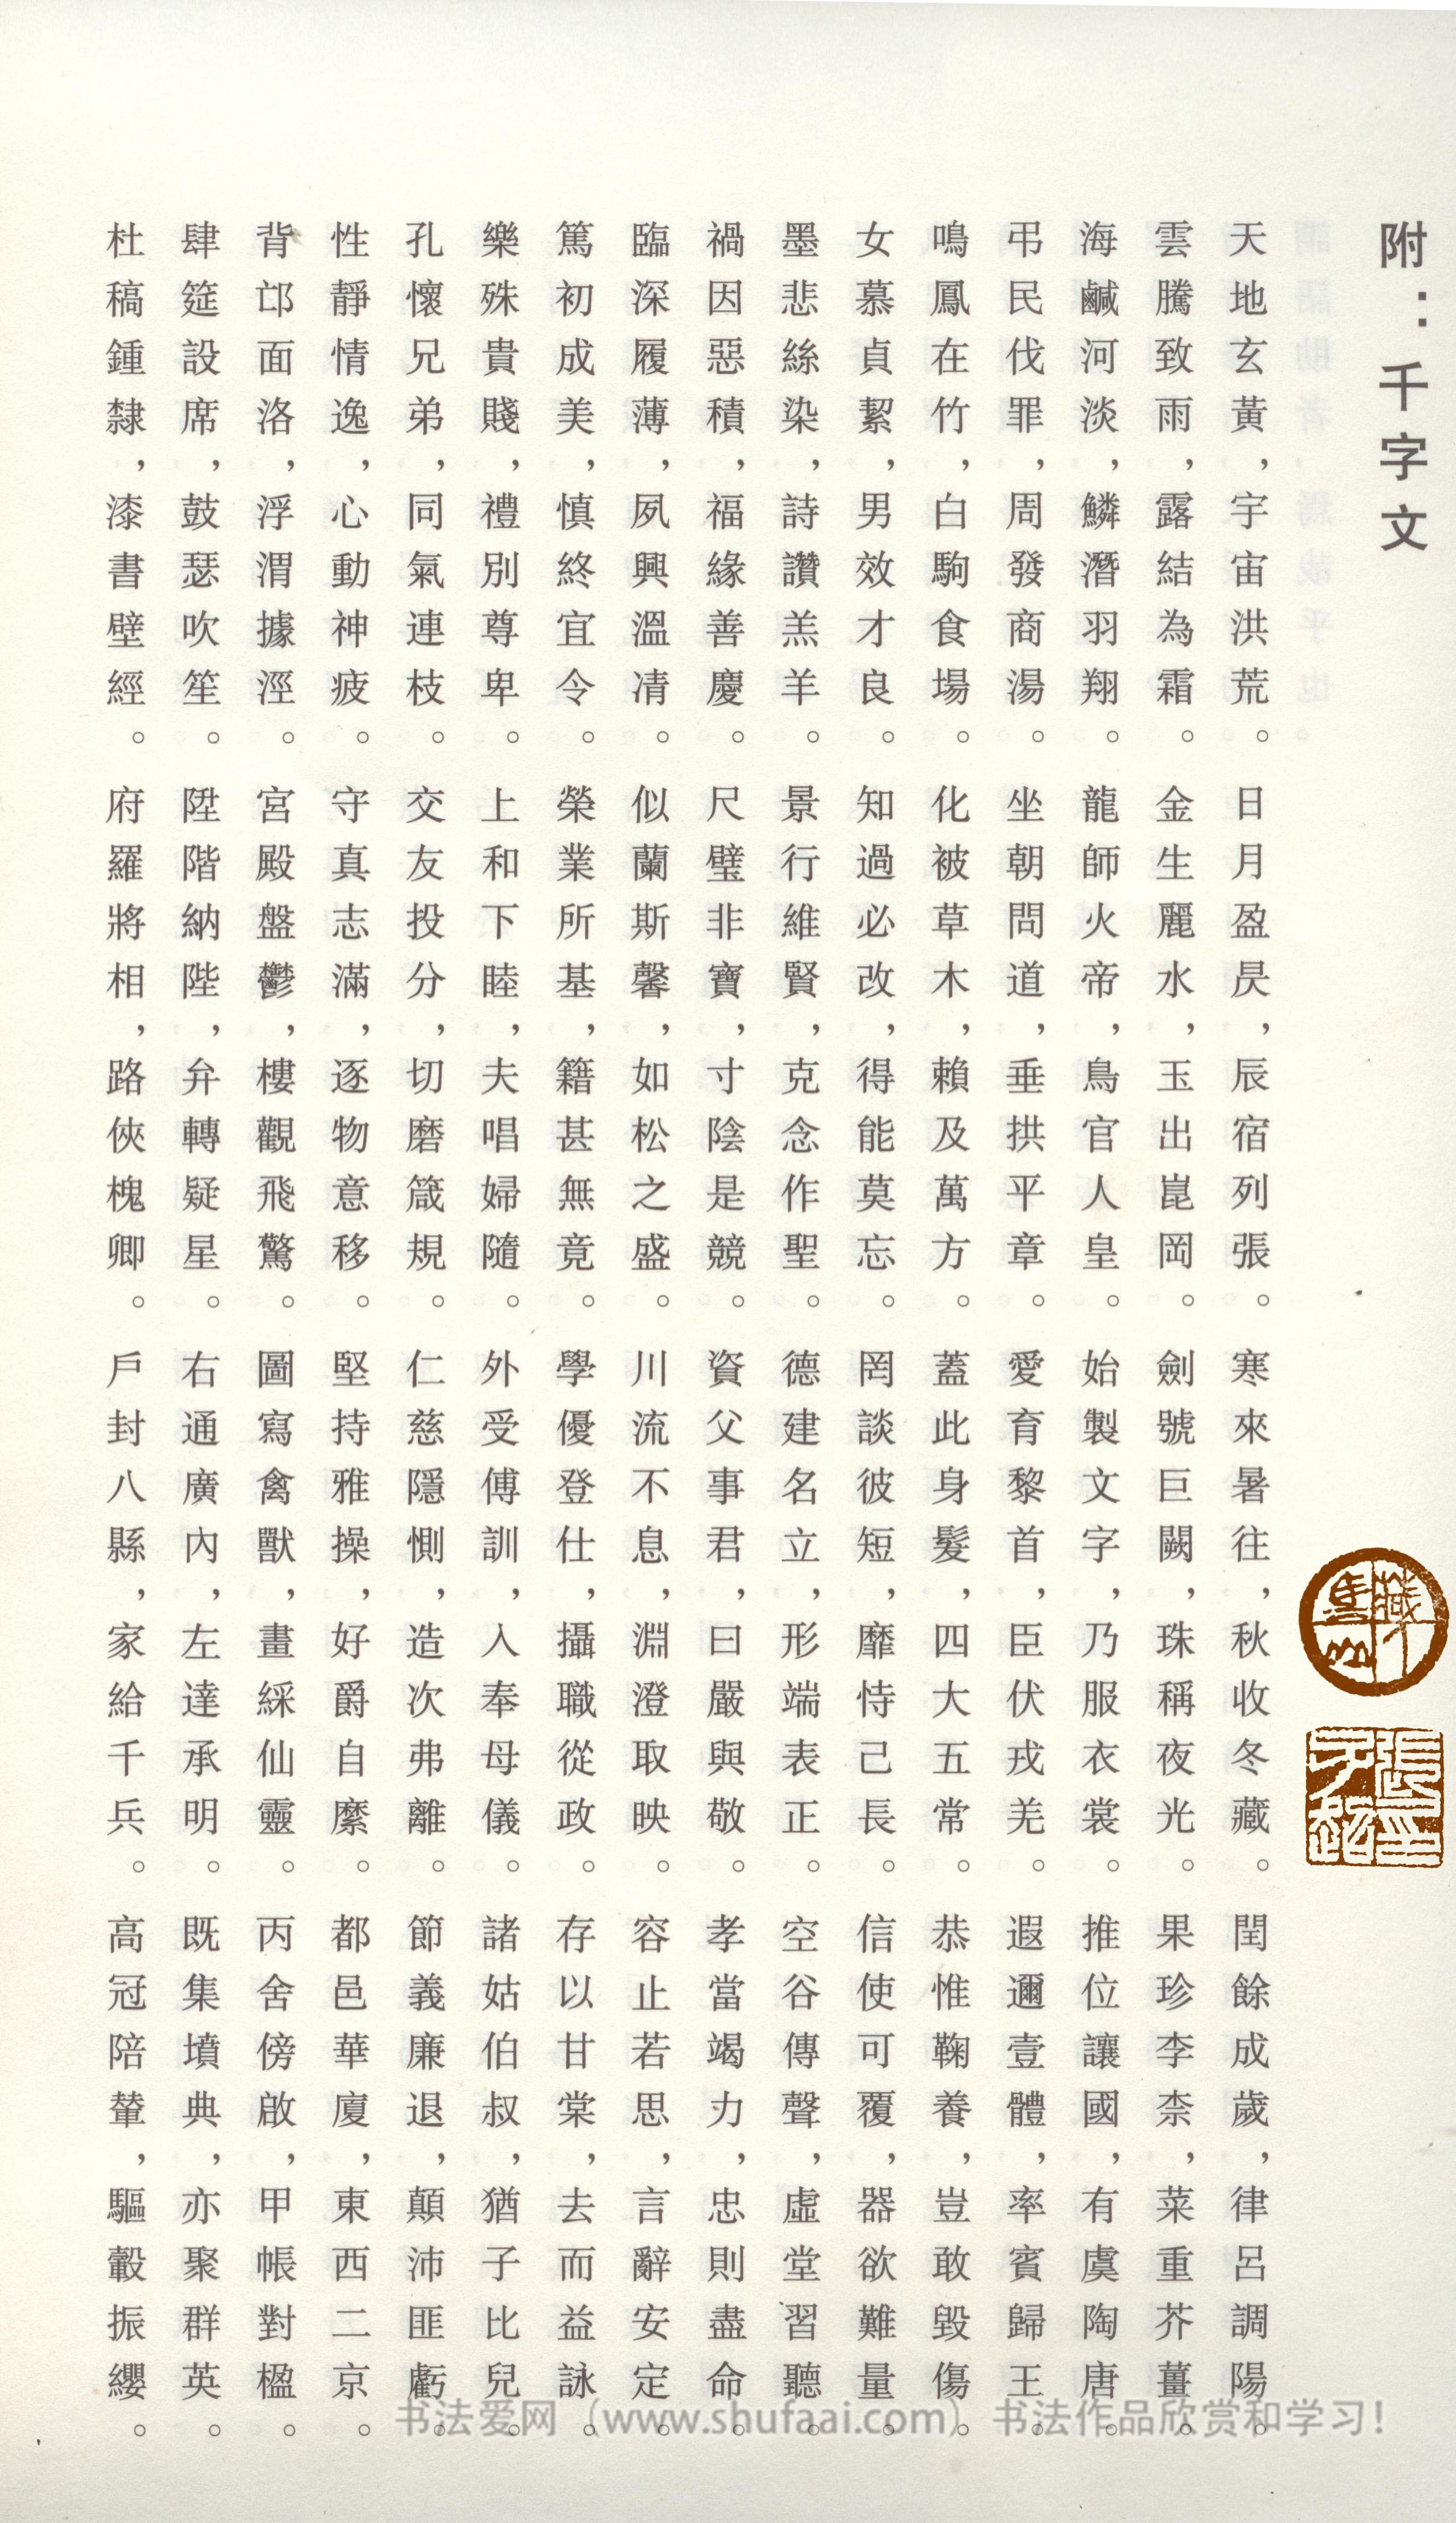 附：千字文
天地玄黃，宇宙洪荒。日月盈昃，辰宿列張。寒來暑往，秋收冬藏。閏餘成歲，律呂調陽。
雲騰致雨，露結為霜。金生麗水，玉出崑岡。劍號巨闕，珠稱夜光。果珍李柰，菜重芥薑。
海鹹河淡，鱗潛羽翔。龍師火帝，鳥官人皇。始製文字，乃服衣裳。推位讓國，有虞陶唐。
弔民伐罪，周發商湯。坐朝問道，垂拱平章。愛育黎首，臣伏戎羌。遐邇壹體，率賓歸王。
鳴鳳在竹，白駒食場。化被草木，賴及萬方。蓋此身髮，四大五常。恭惟鞠養，豈敢毀傷。
女慕貞絜，男效才良。知過必改，得能莫忘。罔談彼短，靡恃己長。信使可覆，器欲難量。
墨悲絲染，詩讚羔羊。景行維賢，克念作聖。德建名立，形端表正。空谷傳聲，虛堂習聽。
禍因惡積，福緣善慶。尺璧非寶，寸陰是競。資父事君，曰嚴與敬。孝當竭力，忠則盡命。
臨深履薄，夙興溫凊。似蘭斯馨，如松之盛。川流不息，淵澄取映。容止若思，言辭安定。
篤初成美，慎終宜令。榮業所基，籍甚無竟。學優登仕，攝職從政。存以甘棠，去而益詠。
樂殊貴賤，禮別尊卑。上和下睦，夫唱婦隨。外受傅訓，入奉母儀。諸姑伯叔，猶子比兒。
孔懷兄弟，同氣連枝。交友投分，切磨箴規。仁慈隱惻，造次弗離。節義廉退，顛沛匪虧。
性靜情逸，心動神疲。守真志滿，逐物意移。堅持雅操，好爵自縻。都邑華廈，東西二京。
背邙面洛，浮渭據涇。宮殿盤鬱，樓觀飛驚。圖寫禽獸，畫綵仙靈。丙舍傍啟，甲帳對楹。
肆筵設席，鼓瑟吹笙。陞階納陛，弁轉疑星。右通廣內，左達承明。既集墳典，亦聚群英。
杜稿鍾隸，漆書壁經。府羅將相，路俠槐卿。戶封八縣，家給千兵。高冠陪輦，驅轂振纓。
书法爱网（www.shufaai.com）书法作品欣赏和学习！